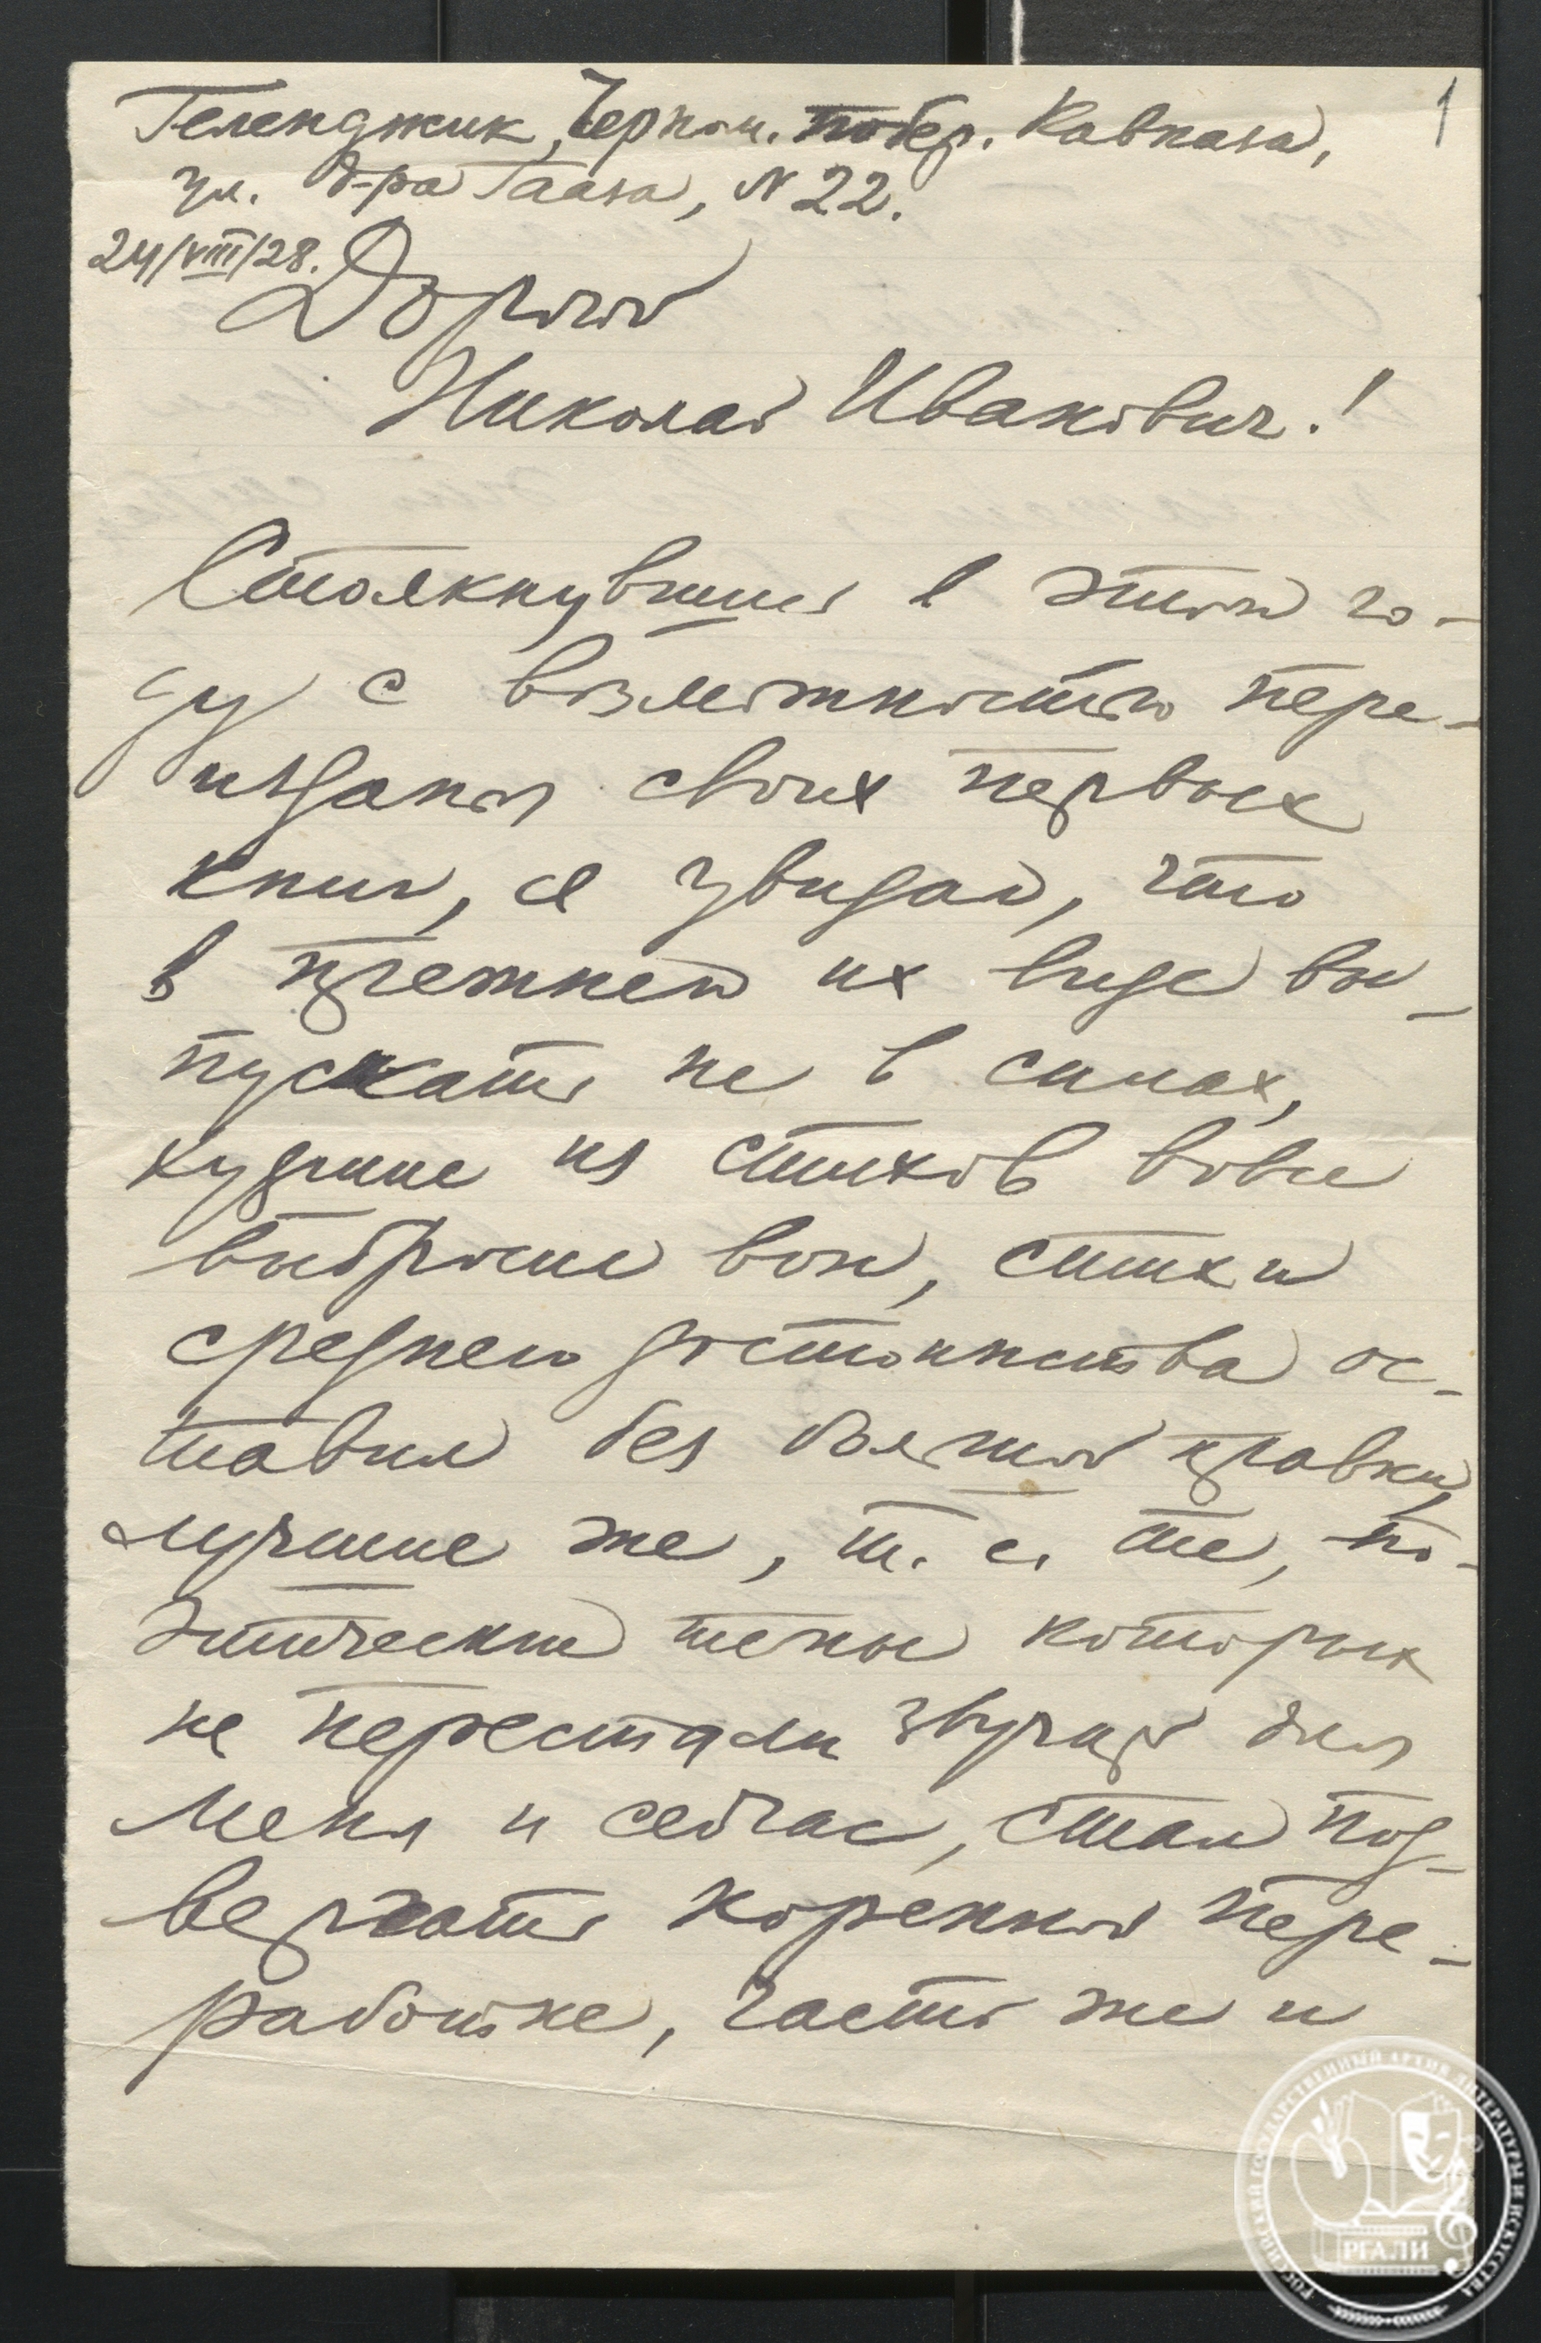 1
Геленджик, Черном. побер. Кавказа,
ул. д-ра Гааза, N 22.
24/VIII/28.
Дорогой
Николай Иванович!
Столкнувшись в этом го-
ду с возможностью пере-
изданья своих первых
книг, я увидал, что
в прежнем их виде вы-
пускать не в силах,
худшие из стихов вовсе
выбросил вон, стихи
среднего достоинства ос-
тавил без большой правки,
лучшие же, т. е. те, по-
этические темы которых
не перестали звучать для
меня и сейчас, стал под-
вергать коренной пере-
работке, часть же и
РОССИЙСКИЙ ГОСУДАРСТВЕННЫЙ АРХИВ ЛИТЕРАТУРЫ И ИСКУССТВА
РГАЛИ